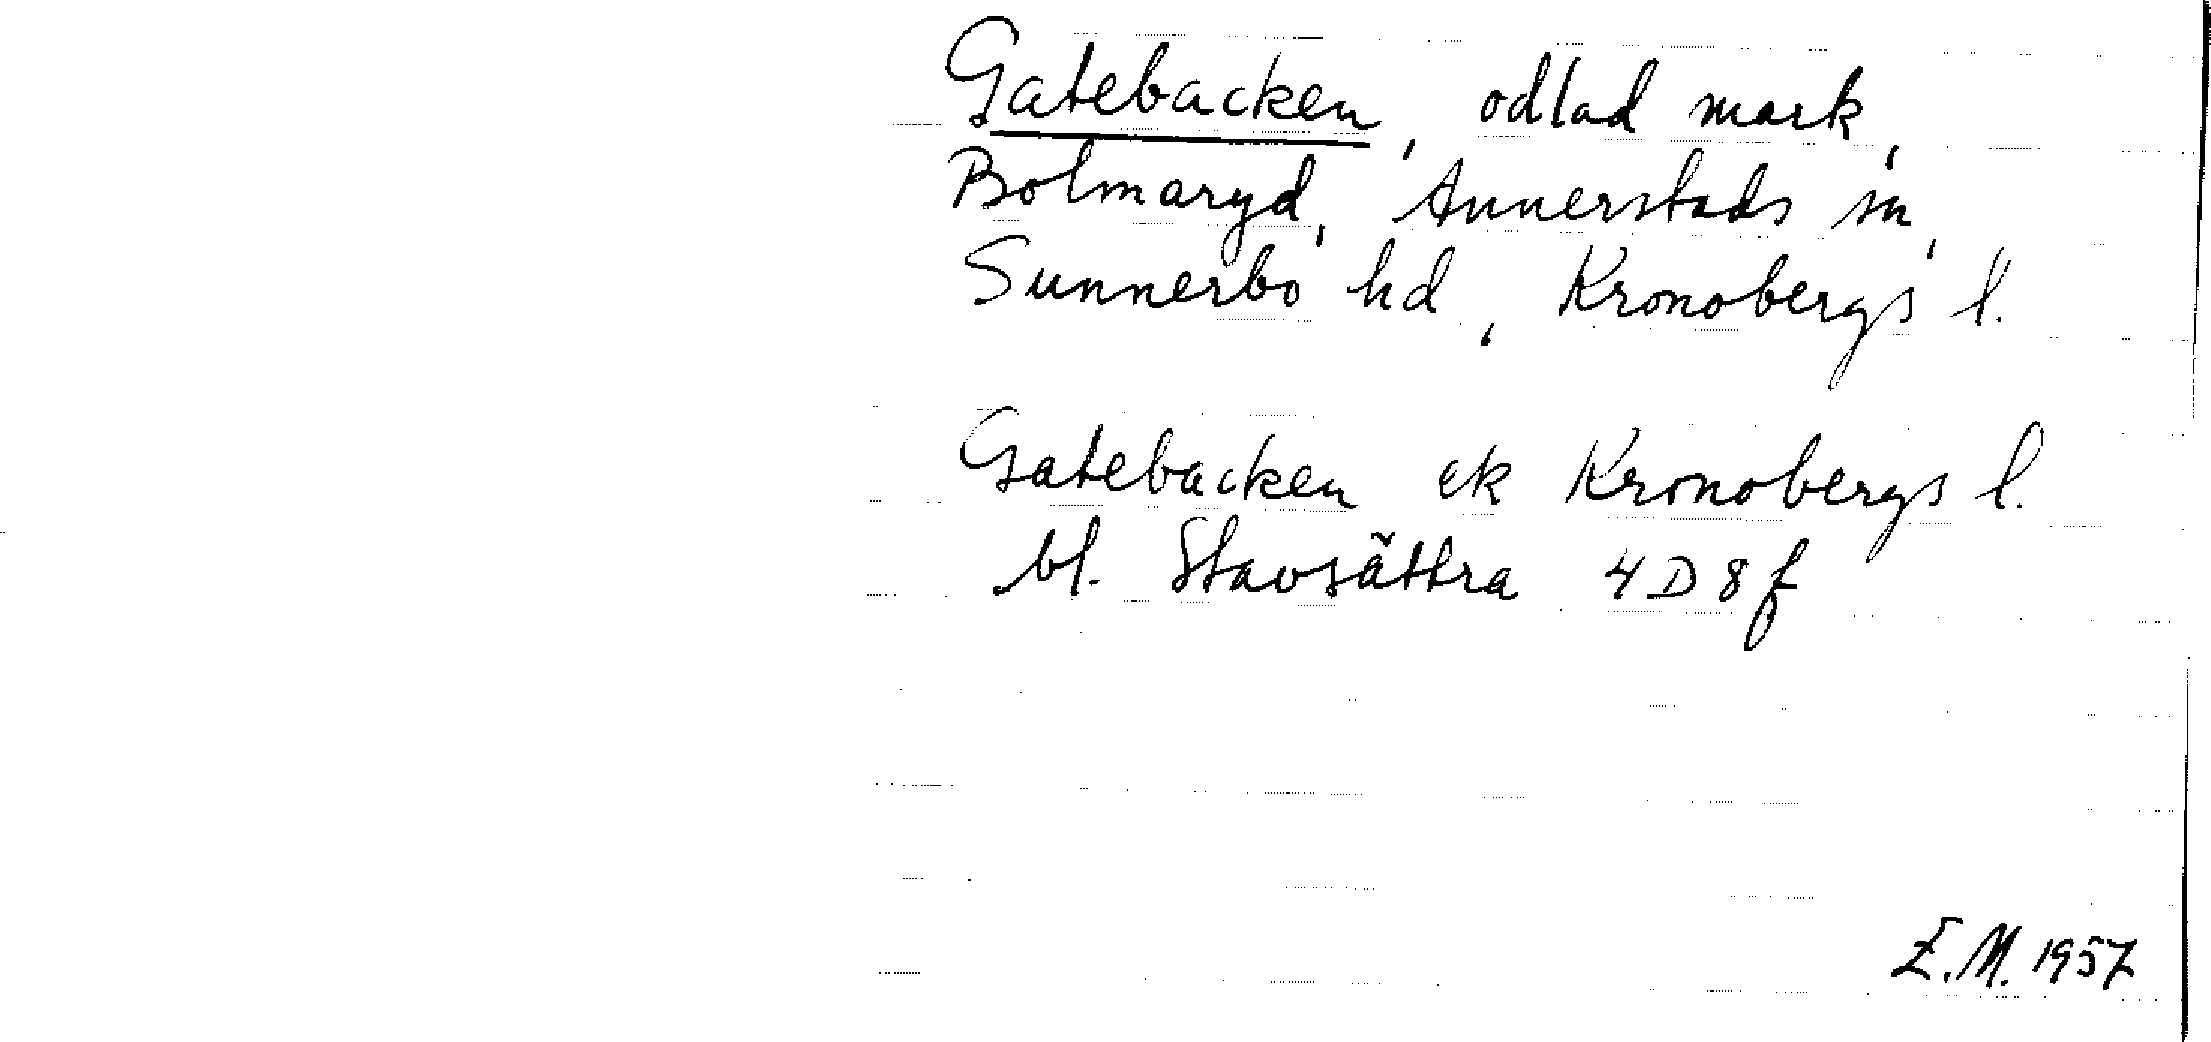 Gatebacken, odlad mark,
Bolmaryd, Annerstads sn,
Sunnerbo hd, Kronobergs l.
Gatebacken ek Kronobergs l.
bl. Stavsättra 4D8f
E.M. 1957